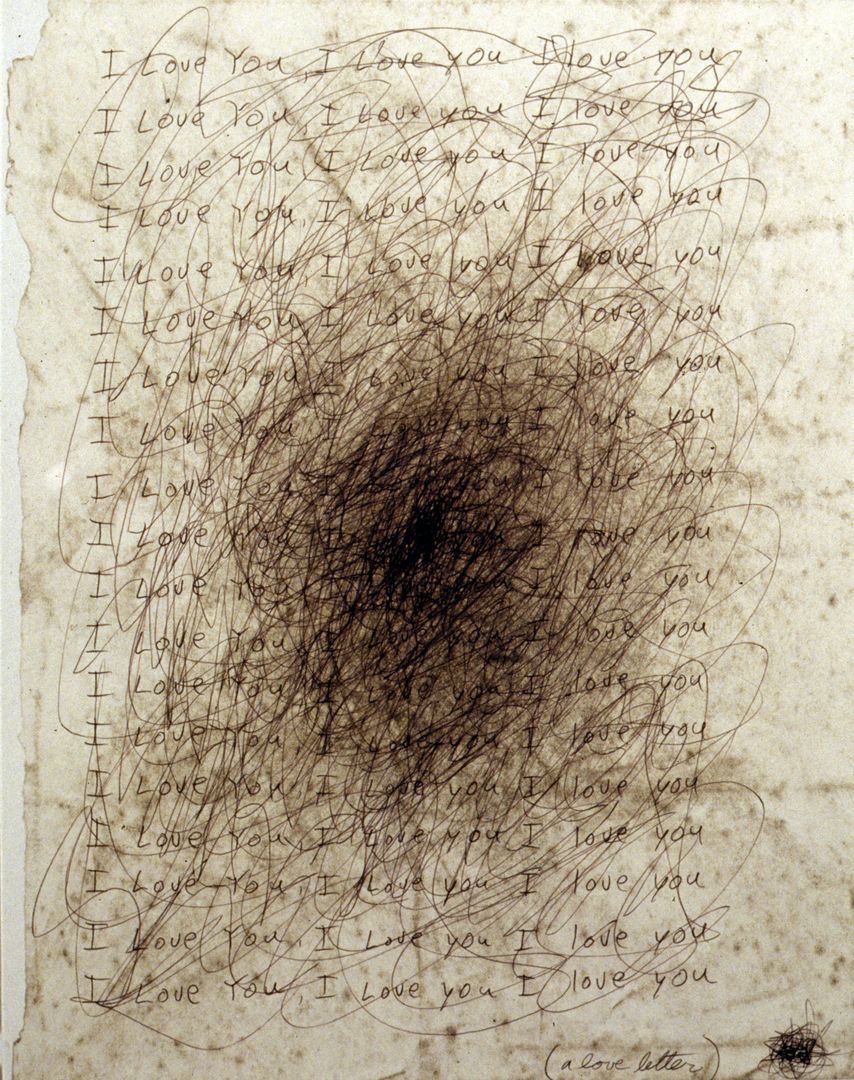 I Love You, I Love you I love you
I Love You, I Love you I love you
I Love You, I Love you I love you
I Love You, I Love you I love you
I Love You, I Love you I love you
I Love You, I Love you I love you
I Love You, I Love you I love you
I Love You, I Love you I love you
I Love You, I you I love you
I Love You, I you I love you
I Love You, I you I love you
I Love You, I Love you I love you
I Love You, I Love you I love you
I Love You, I Love you I love you
I Love You, I Love you I love you
I Love You, I Love you I love you
I Love You, I Love you I love you
I Love You, I Love you I love you
I Love You, I Love you I love you
(a love letter)